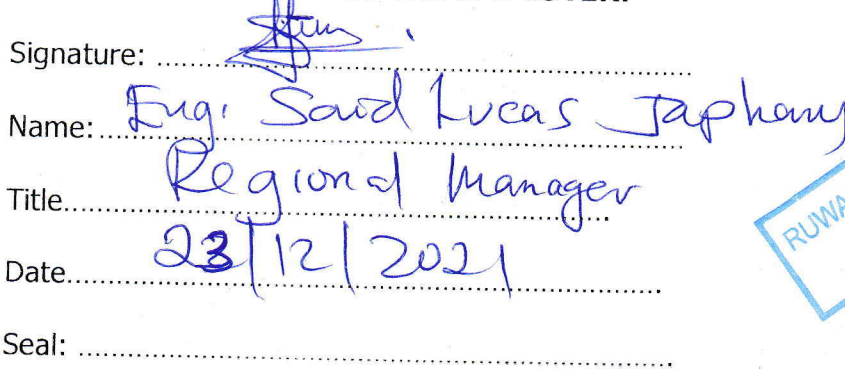 Signature: ..........
Name: Eng. Said Lucas Japhary
Title.......... Regional Manager
Date.......... 23/12/2021
RUWA
Seal: ..........